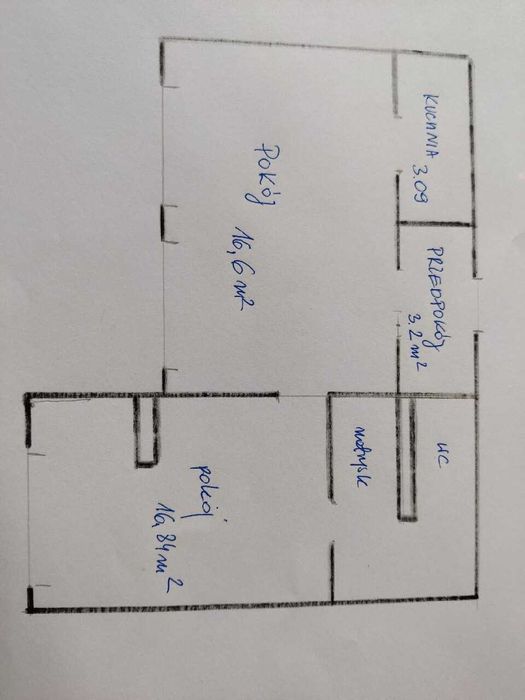 KUCHNIA
3.09
PRZEDPOKÓJ
3.2 m²
Pokój
16,6 m²
WC
pokój
16,84 m²